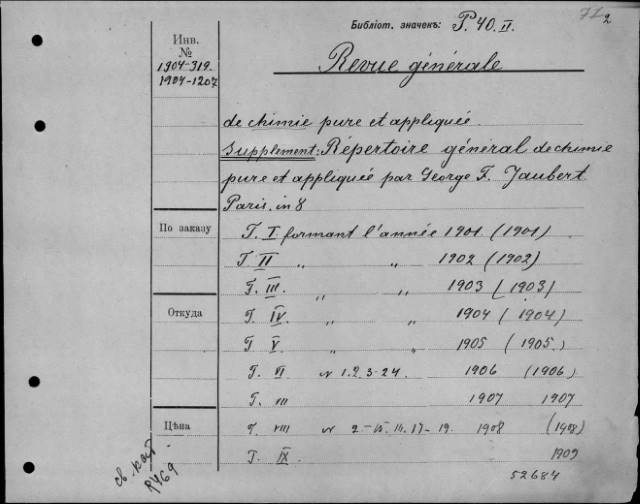 Библіот. значекъ: P. 40. II.
71 2
Инв.
№
1904-319.
1904-1207
Revue générale
de chimie pure et appliquée.
Supplement: Répertoire général de chimie
pure et appliquée par George F. Jaubert
Paris. in 8
По заказу
T. I. formant l'année 1901 (1901)
T. II „ „ 1902 (1902)
T. III. „ „ 1903 (1903)
Откуда
T. IV. „ „ 1904 (1904)
T. V. „ „ 1905 (1905.)
T. VI № 1.2.3-24. 1906 (1906)
T. VII 1907 1907
Цѣна
T. VIII № 2- 17-19. 1908 (1908)
T. IX. 1909
св. кат
P469
52684